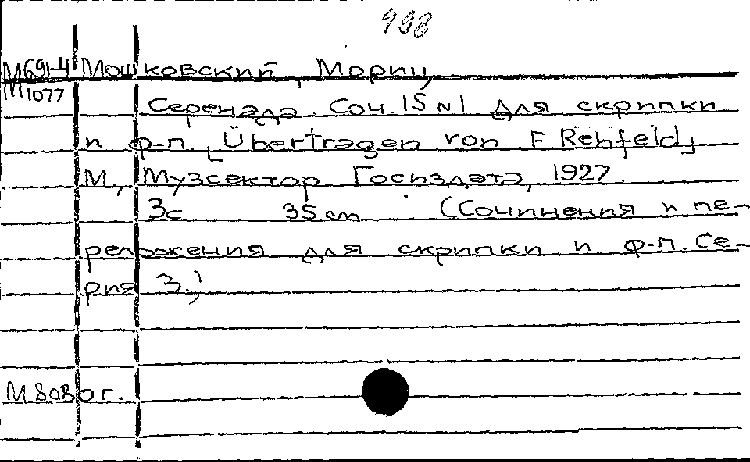 998
М691-4 Мошковский, Мориц
М1077
Серенада. Соч. 15 N1 для скрипки
и ф-п. [Übertragen von F. Rehfeld]
М., Музсектор Госиздата, 1927.
3с 35 см (Сочинения и пе-
реложения для скрипки и ф-п. Се-
рия 3.)
М 808 ог.